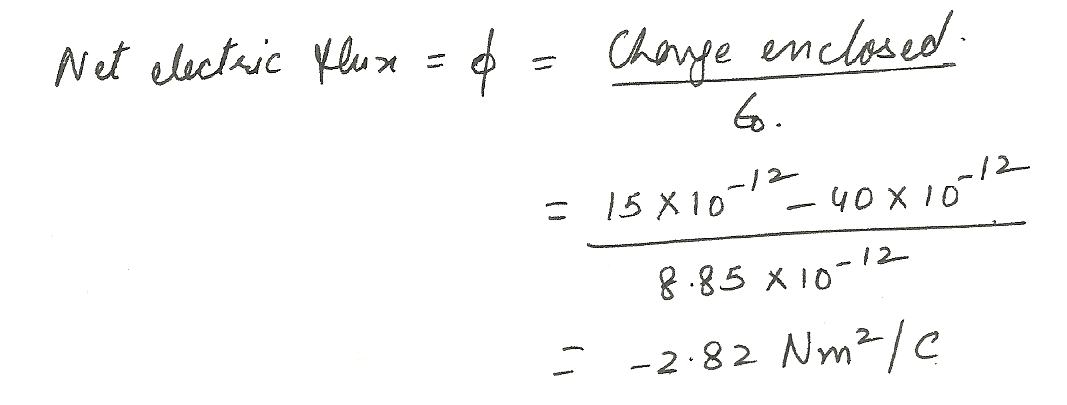 Net electric flux = ϕ = Charge enclosed.
ϵ0.
= 15 × 10^-12 - 40 × 10^-12
8.85 × 10^-12
= -2.82 Nm²/C